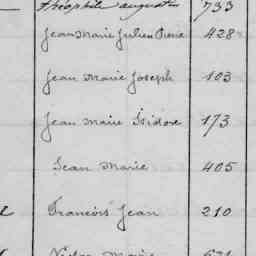 théophile auguste 733
Jean Marie Julien Pierre 428
Jean Marie Joseph 103
Jean Marie Isidore 173
Jean Marie 405
François Jean 210
Victor Marie